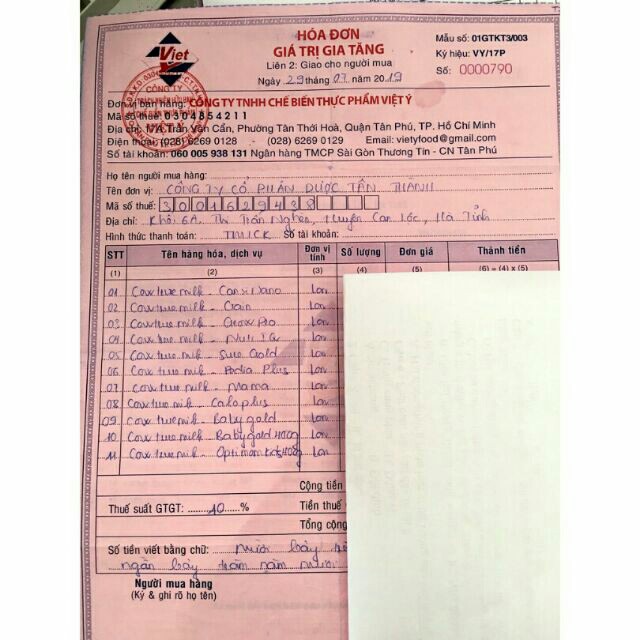 Việt
HÓA ĐƠN
GIÁ TRỊ GIA TĂNG
Liên 2: Giao cho người mua
Ngày 29 tháng 07 năm 2019
Mẫu số: 01GTKT3/003
Ký hiệu: VY/17P
Số: 0000790
CÔNG TY
VIỆT Ý
Đơn vị bán hàng: CÔNG TY TNHH CHẾ BIẾN THỰC PHẨM VIỆT Ý
Mã số thuế: 0304854211
Địa chỉ: Trần Văn Cẩn, Phường Tân Thới Hoà, Quận Tân Phú, TP. Hồ Chí Minh
Điện thoại: (028) 6269 0128 - (028) 6269 0129 Email: vietyfood@gmail.com
Số tài khoản: 060 005 938 131 Ngân hàng TMCP Sài Gòn Thương Tín - CN Tân Phú
Họ tên người mua hàng:
Tên đơn vị: CÔNG TY CỔ PHẦN DƯỢC TẤN THÀNH
Mã số thuế: 3001629438
Địa chỉ: Khối 6A, Thị Trấn Nghèn, Huyện Can Lộc, Hà Tĩnh
Hình thức thanh toán: TM/CK Số tài khoản:
STT Tên hàng hóa, dịch vụ Đơn vị tính Số lượng Đơn giá Thành tiền
(1) (2) (3) (4) (5) (6) = (4) x (5)
01 Cow true milk - Cansi Nano Lon
02 Cow true milk - Gain Lon
03 Cow true milk - Grow Pro Lon
04 Cow true milk - Nuti IQ Lon
05 Cow true milk - Sure Gold Lon
06 Cow true milk - Pedia Plus Lon
07 Cow true milk - Mama Lon
08 Cow true milk - Calo plus Lon
09 Cow true milk - Baby gold Lon
10 Cow true milk - Baby gold 400g Lon
11 Cow true milk - Optimum Kids 400g Lon
Cộng tiền
Thuế suất GTGT: 10 % Tiền thuế
Tổng cộng
Số tiền viết bằng chữ: Mười bảy
ngàn bảy trăm năm mươi
Người mua hàng
(Ký & ghi rõ họ tên)